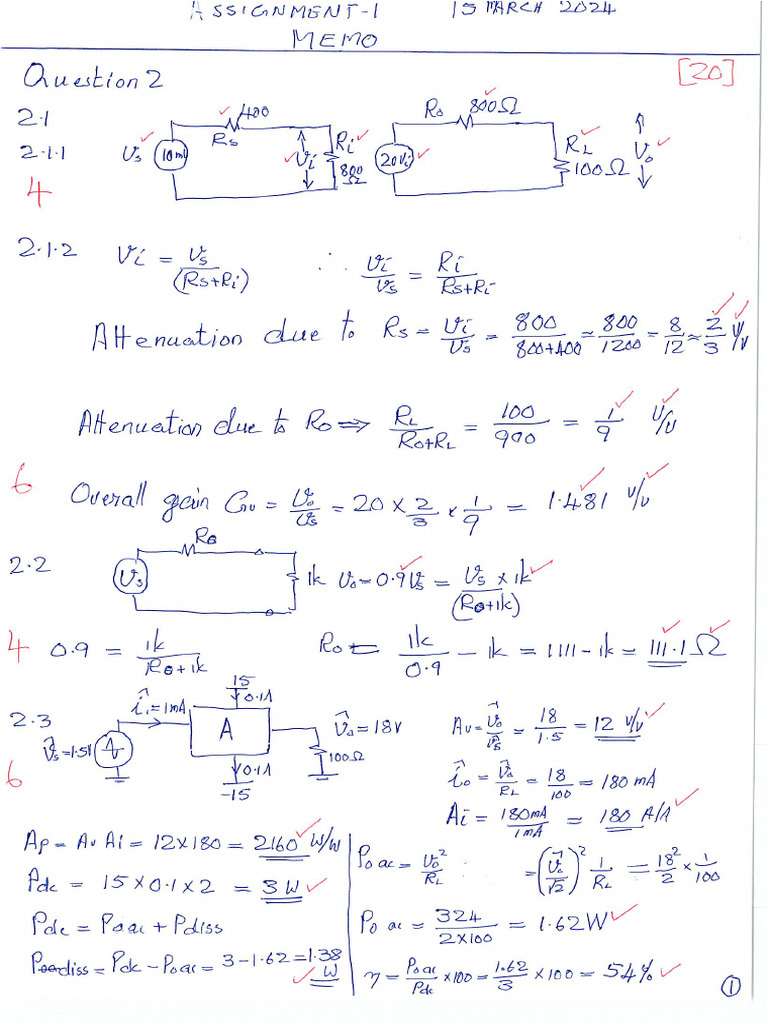 ASSIGNMENT-1 15 MARCH 2024
MEMO
Question 2 [20]
2.1
2.1.1 Vs 10mV Rs 400 Vi Ri 800 Ω 20Vi Ro 800Ω RL 100Ω Vo
4
2.1.2 Vi = Vs/(Rs+Ri) ∴ Vi/Vs = Ri/(Rs+Ri)
Attenuation due to Rs = Vi/Vs = 800/(800+400) = 800/1200 = 8/12 ≈ 2/3 V/V
Attenuation due to Ro ⇒ RL/(Ro+RL) = 100/900 = 1/9 V/V
6
Overall gain Gv = Vo/Vs = 20 × 2/3 × 1/9 = 1.481 V/V
2.2 Vs Ro 1k Vo = 0.9Vs = Vs × 1k/(Ro+1k)
4 0.9 = 1k/(Ro+1k) Ro = 1k/0.9 - 1k = 1111-1k = 111.1 Ω
2.3 V̂s=1.5V î1=1mA 15 0.1A A 0.1A -15 V̂o=18V 100Ω
Av = V̂o/V̂s = 18/1.5 = 12 V/V
6
îo = V̂o/RL = 18/100 = 180 mA
Ai = 180mA/1mA = 180 A/A
Ap = Av Ai = 12×180 = 2160 W/W
Pdc = 15×0.1×2 = 3W
Pdc = Poac + Pdiss
Pdiss = Pdc - Poac = 3-1.62 = 1.38 W
Po ac = Vo²/RL = (V̂o/√2)² 1/RL = 18²/2 × 1/100
Po ac = 324/(2×100) = 1.62W
η = Poac/Pdc × 100 = 1.62/3 × 100 = 54%
1